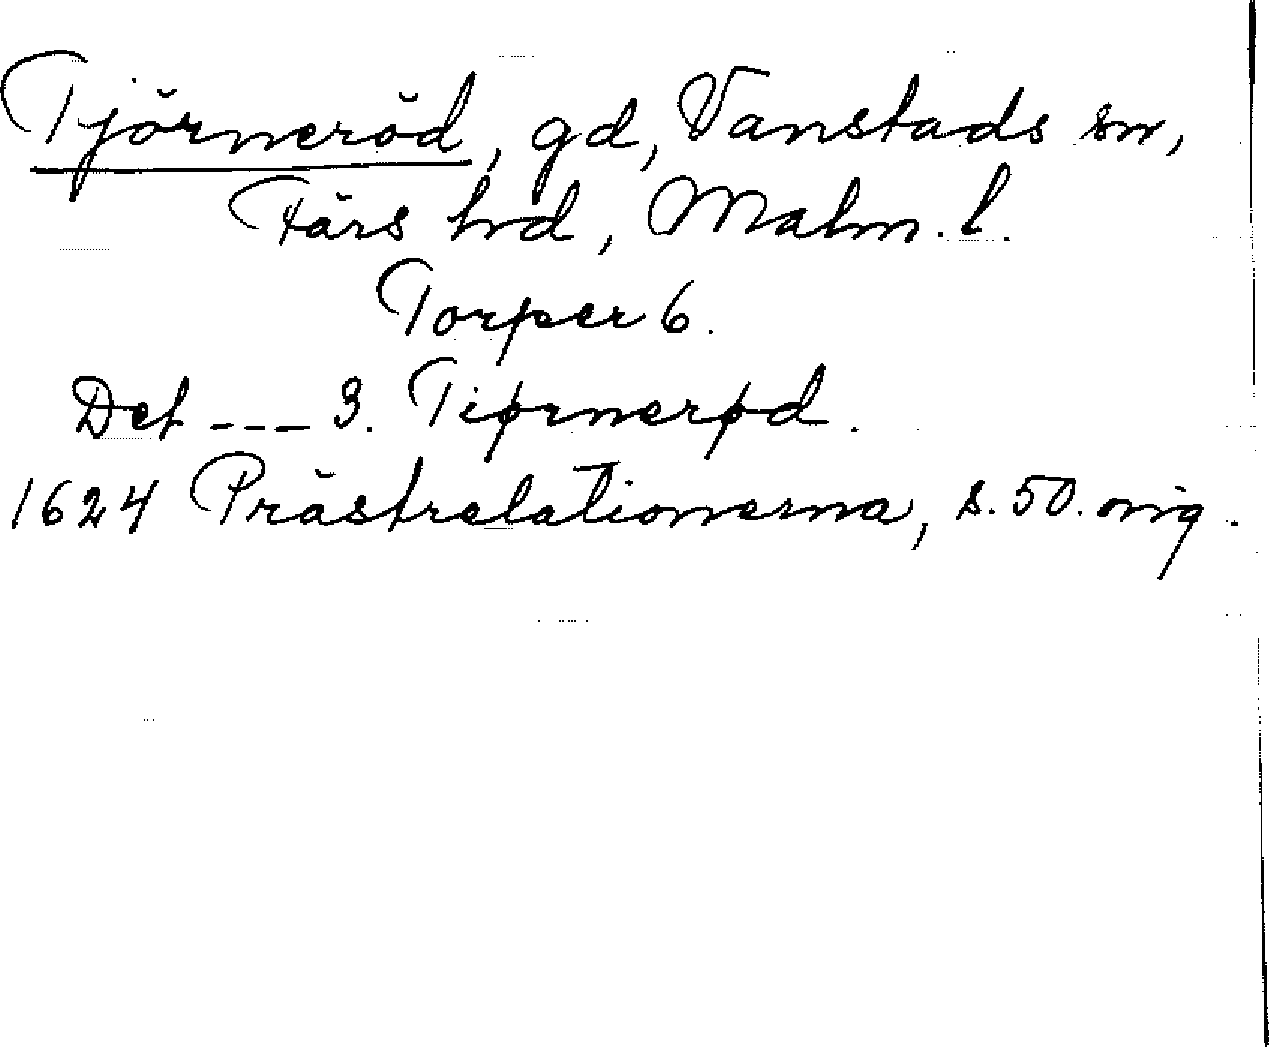 Tjörneröd, gd, Vanstads sn,
Färs hd, Malm. l.
Torper 6.
Det --- 3. Tiørnerød.
1624 Prästrelationerna, s. 50. orig.